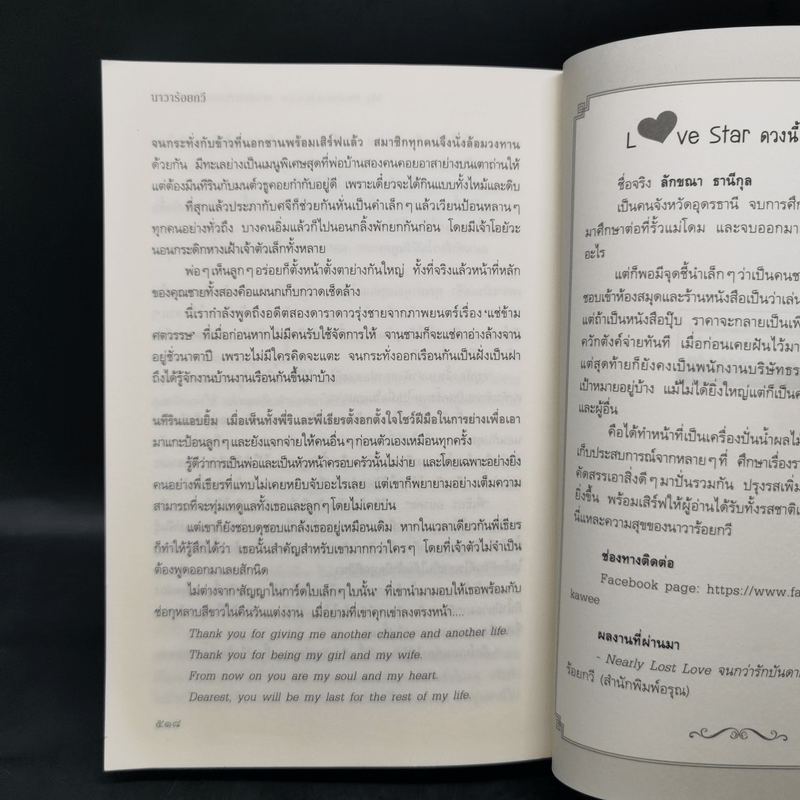 นาวาร้อยกวี
จนกระทั่งกับข้าวที่นอกชานพร้อมเสิร์ฟแล้ว สมาชิกทุกคนจึงนั่งล้อมวงทาน
ด้วยกัน มีทะเลย่างเป็นเมนูพิเศษสุดที่พ่อบ้านสองคนคอยอาสาย่างบนเตาถ่านให้
แต่ต้องมีนทีรินกับมนต์วธูคอยกำกับอยู่ดี เพราะเดี๋ยวจะได้กินแบบทั้งไหม้และดิบ
ที่สุกแล้วประภากับศจีก็ช่วยกันหั่นเป็นคำเล็กๆ แล้วเวียนป้อนหลานๆ
ทุกคนอย่างทั่วถึง บางคนอิ่มแล้วก็ไปนอกลิ้งพักยกกันก่อน โดยมีเจ้าโอยัวะ
นอนกระดิกหางเฝ้าเจ้าตัวเล็กทั้งหลาย
พ่อๆ เห็นลูกๆ อร่อยก็ตั้งหน้าตั้งตาย่างกันใหญ่ ทั้งที่จริงแล้วหน้าที่หลัก
ของคุณชายทั้งสองคือแผนกเก็บกวาดเช็ดล้าง
นี่เรากำลังพูดถึงอดีตสองดาราดาวรุ่งชายจากภาพยนตร์เรื่อง 'แซ่ข้าม
ศตวรรษ' ที่เมื่อก่อนหากไม่มีคนรับใช้จัดการให้ จานชามก็จะแช่คาอ่างล้างจาน
อยู่ชั่วนาตาปี เพราะไม่มีใครคิดจะแตะ จนกระทั่งออกเรือนกันเป็นฝั่งเป็นฝา
ถึงได้รู้จักงานบ้านงานเรือนกันขึ้นมาบ้าง
นทีรินแอบยิ้ม เมื่อเห็นทั้งพี่ริและพี่เธียรตั้งอกตั้งใจโชว์ฝีมือในการย่างเพื่อเอา
มาแกะป้อนลูกๆ และยังแจกจ่ายให้คนอื่นๆ ก่อนตัวเองเหมือนทุกครั้ง
รู้ดีว่าการเป็นพ่อและเป็นหัวหน้าครอบครัวนั้นไม่ง่าย และโดยเฉพาะอย่างยิ่ง
คนอย่างพี่เธียรที่แทบไม่เคยหยิบจับอะไรเลย แต่เขาก็พยายามอย่างเต็มความ
สามารถที่จะทุ่มเทดูแลทั้งเธอและลูกๆ โดยไม่เคยบ่น
แต่เขาก็ยังชอบดุชอบแกล้งเธออยู่เหมือนเดิม หากในเวลาเดียวกันพี่เธียร
ก็ทำให้รู้สึกได้ว่า เธอนั้นสำคัญสำหรับเขามากกว่าใครๆ โดยที่เจ้าตัวไม่จำเป็น
ต้องพูดออกมาเลยสักนิด
ไม่ต่างจาก 'สัญญาในการ์ดใบเล็กๆ ใบนั้น' ที่เขานำมามอบให้เธอพร้อมกับ
ช่อกุหลาบสีขาวในคืนวันแต่งงาน เมื่อยามที่เขาคุกเข่าลงตรงหน้า....
Thank you for giving me another chance and another life.
Thank you for being my girl and my wife.
From now on you are my soul and my heart.
Dearest, you will be my last for the rest of my life.
๕๑๘
L ve Star ดวงนี้
ชื่อจริง ลักขณา ธานีกุล
เป็นคนจังหวัดอุดรธานี จบการศึ
มาศึกษาต่อที่รั้วแม่โดม และจบออกมา
อะไร
แต่ก็พอมีจุดชี้นำเล็กๆ ว่าเป็นคน
ชอบเข้าห้องสมุดและร้านหนังสือเป็นว่าเล่น
แต่ถ้าเป็นหนังสือปุ๊บ ราคาจะกลายเป็นเ
ควักตังค์จ่ายทันที เมื่อก่อนเคยฝันไว้มา
แต่สุดท้ายก็ยังคงเป็นพนักงานบริษัทธร
เป้าหมายอยู่บ้าง แม้ไม่ได้ยิ่งใหญ่แต่ก็เป็น
และผู้อื่น
คือได้ทำหน้าที่เป็นเครื่องปั่นน้ำผลไ
เก็บประสบการณ์จากหลายๆ ที่ ศึกษาเรื่อง
คัดสรรเอาสิ่งดีๆ มาปั่นรวมกัน ปรุงรสเพิ่ม
ยิ่งขึ้น พร้อมเสิร์ฟให้ผู้อ่านได้รับทั้งรสชาติ
นี่แหละความสุขของนาวาร้อยกวี
ช่องทางติดต่อ
Facebook page: https://www.fa
kawee
ผลงานที่ผ่านมา
- Nearly Lost Love จนกว่ารักบันดา
ร้อยกวี (สำนักพิมพ์อรุณ)